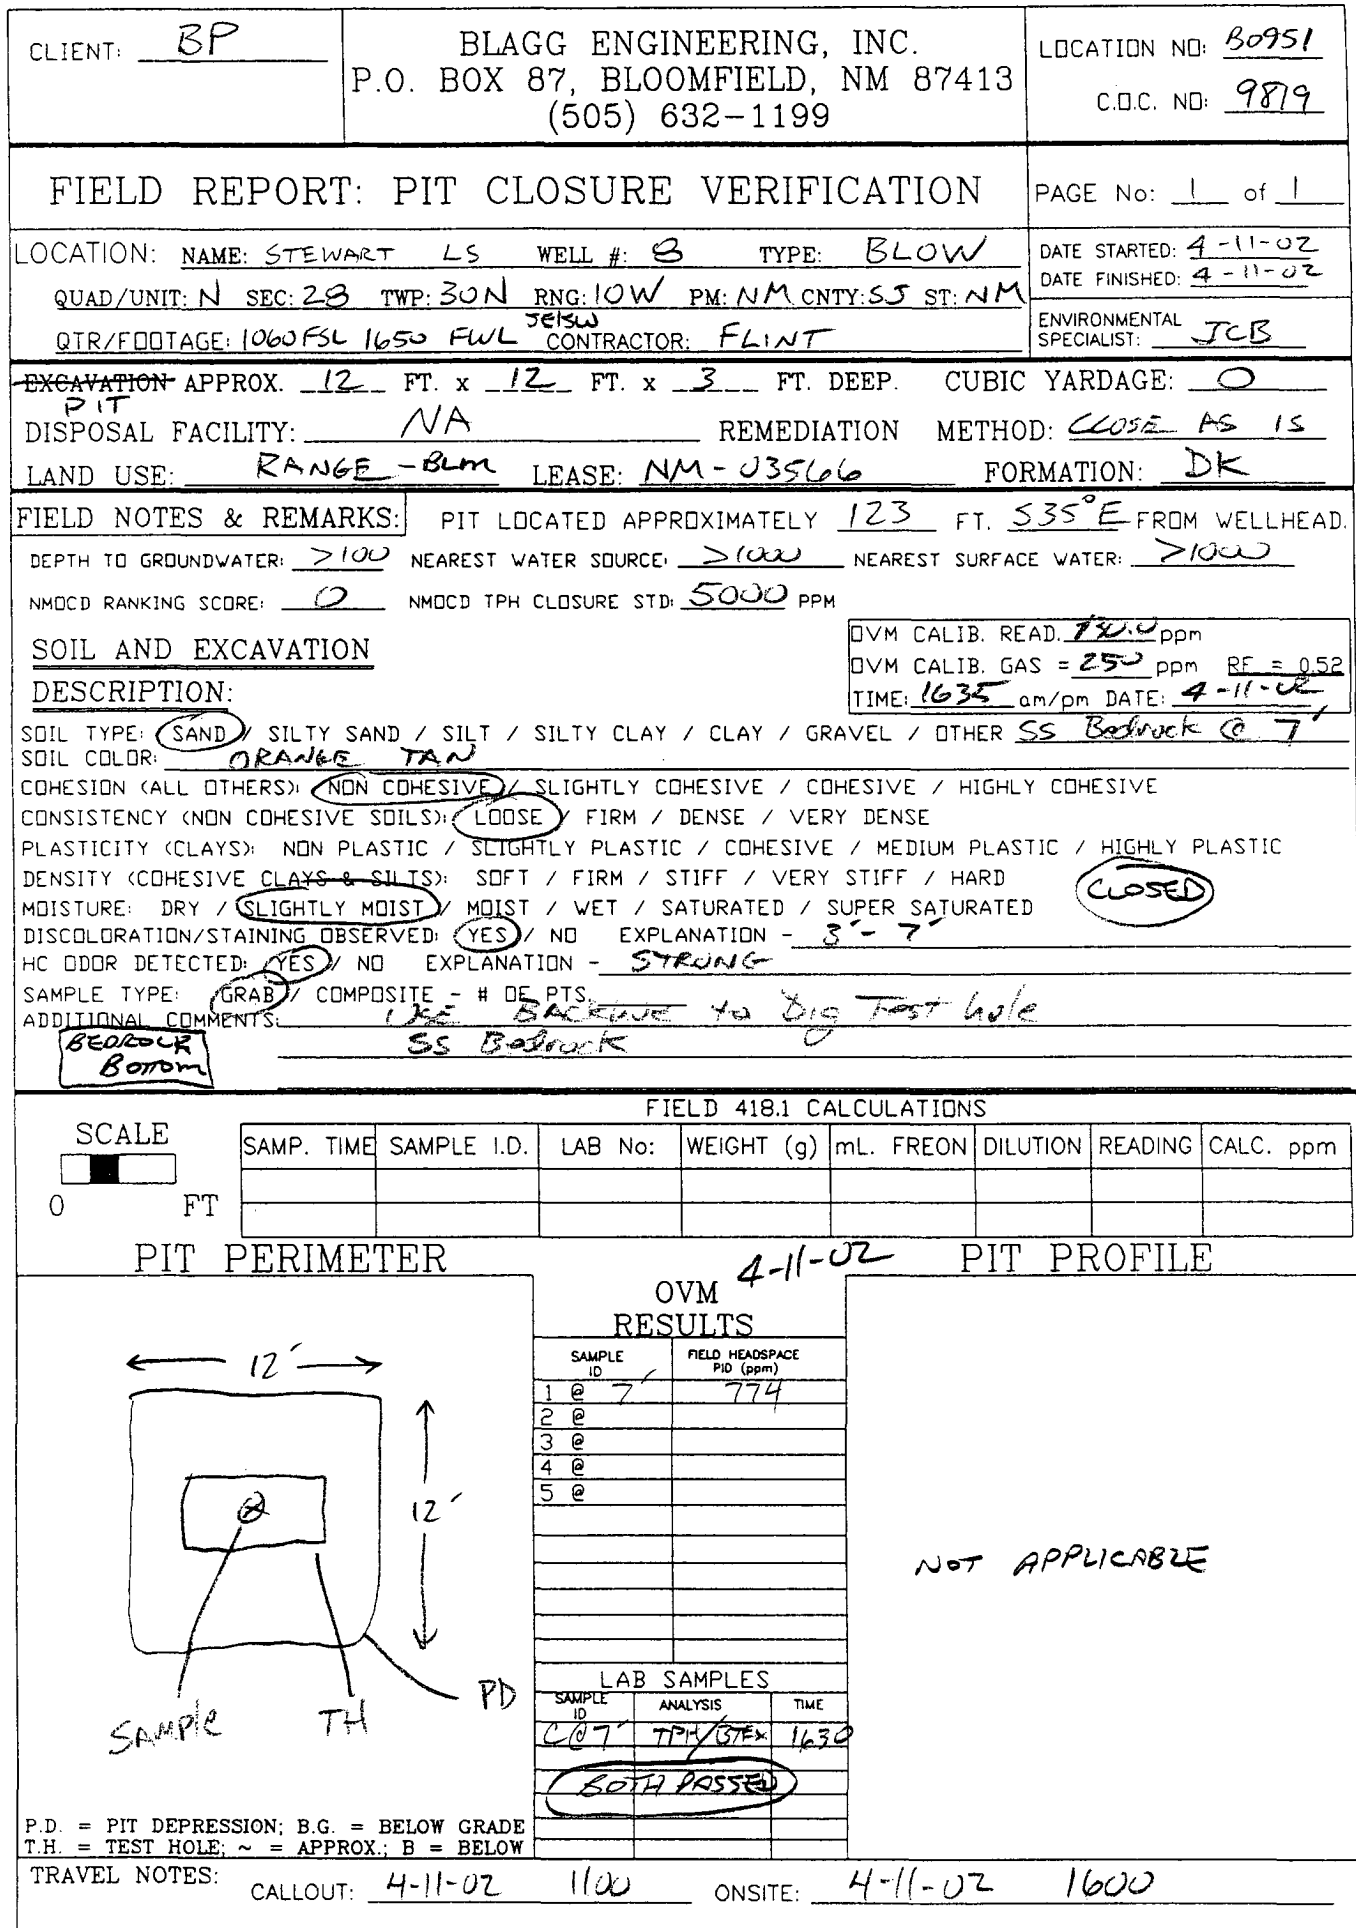 CLIENT: BP
BLAGG ENGINEERING, INC.
P.O. BOX 87, BLOOMFIELD, NM 87413
(505) 632-1199
LOCATION NO: B0951
C.O.C. NO: 9819
FIELD REPORT: PIT CLOSURE VERIFICATION
PAGE No: 1 of 1
LOCATION: NAME: STEWART LS WELL #: 8 TYPE: BLOW
QUAD/UNIT: N SEC: 28 TWP: 30N RNG: 10W PM: NM CNTY: SJ ST: NM
QTR/FOOTAGE: 1060 FSL 1650 FWL SE/SW CONTRACTOR: FLINT
DATE STARTED: 4-11-02
DATE FINISHED: 4-11-02
ENVIRONMENTAL
SPECIALIST: JCB
EXCAVATION APPROX. 12 FT. x 12 FT. x 3 FT. DEEP. CUBIC YARDAGE: 0
PIT
DISPOSAL FACILITY: NA REMEDIATION METHOD: CLOSE AS IS
LAND USE: RANGE - BLM LEASE: NM-03566 FORMATION: DK
FIELD NOTES & REMARKS: PIT LOCATED APPROXIMATELY 123 FT. S35°E FROM WELLHEAD.
DEPTH TO GROUNDWATER: >100 NEAREST WATER SOURCE: >1000 NEAREST SURFACE WATER: >1000
NMOCD RANKING SCORE: 0 NMOCD TPH CLOSURE STD: 5000 PPM
SOIL AND EXCAVATION
DESCRIPTION:
OVM CALIB. READ. ppm
OVM CALIB. GAS = 250 ppm RF = 0.52
TIME: 1635 am/pm DATE: 4-11-02
SOIL TYPE: SAND / SILTY SAND / SILT / SILTY CLAY / CLAY / GRAVEL / OTHER SS Bedrock @ 7'
SOIL COLOR: ORANGE TAN
COHESION (ALL OTHERS): NON COHESIVE / SLIGHTLY COHESIVE / COHESIVE / HIGHLY COHESIVE
CONSISTENCY (NON COHESIVE SOILS): LOOSE / FIRM / DENSE / VERY DENSE
PLASTICITY (CLAYS): NON PLASTIC / SLIGHTLY PLASTIC / COHESIVE / MEDIUM PLASTIC / HIGHLY PLASTIC
DENSITY (COHESIVE CLAYS & SILTS): SOFT / FIRM / STIFF / VERY STIFF / HARD
CLOSED
MOISTURE: DRY / SLIGHTLY MOIST / MOIST / WET / SATURATED / SUPER SATURATED
DISCOLORATION/STAINING OBSERVED: YES / NO EXPLANATION - 3'-7'
HC ODOR DETECTED: YES / NO EXPLANATION - STRONG
SAMPLE TYPE: GRAB / COMPOSITE - # OF PTS.
ADDITIONAL COMMENTS: USE BACKHOE to Dig Test hole
SS Bedrock
BEDROCK
BOTTOM
FIELD 418.1 CALCULATIONS
SCALE
0 FT
SAMP. TIME SAMPLE I.D. LAB No: WEIGHT (g) mL. FREON DILUTION READING CALC. ppm
PIT PERIMETER
4-11-02
PIT PROFILE
OVM
RESULTS
SAMPLE ID FIELD HEADSPACE PID (ppm)
1 @ 7' 774
2 @
3 @
4 @
5 @
12'
12'
SAMPLE
TH
PD
NOT APPLICABLE
LAB SAMPLES
SAMPLE ID ANALYSIS TIME
C@7' TPH/BTEX 1630
BOTH PASSED
P.D. = PIT DEPRESSION; B.G. = BELOW GRADE
T.H. = TEST HOLE; ~ = APPROX.; B = BELOW
TRAVEL NOTES: CALLOUT: 4-11-02 1100 ONSITE: 4-11-02 1600